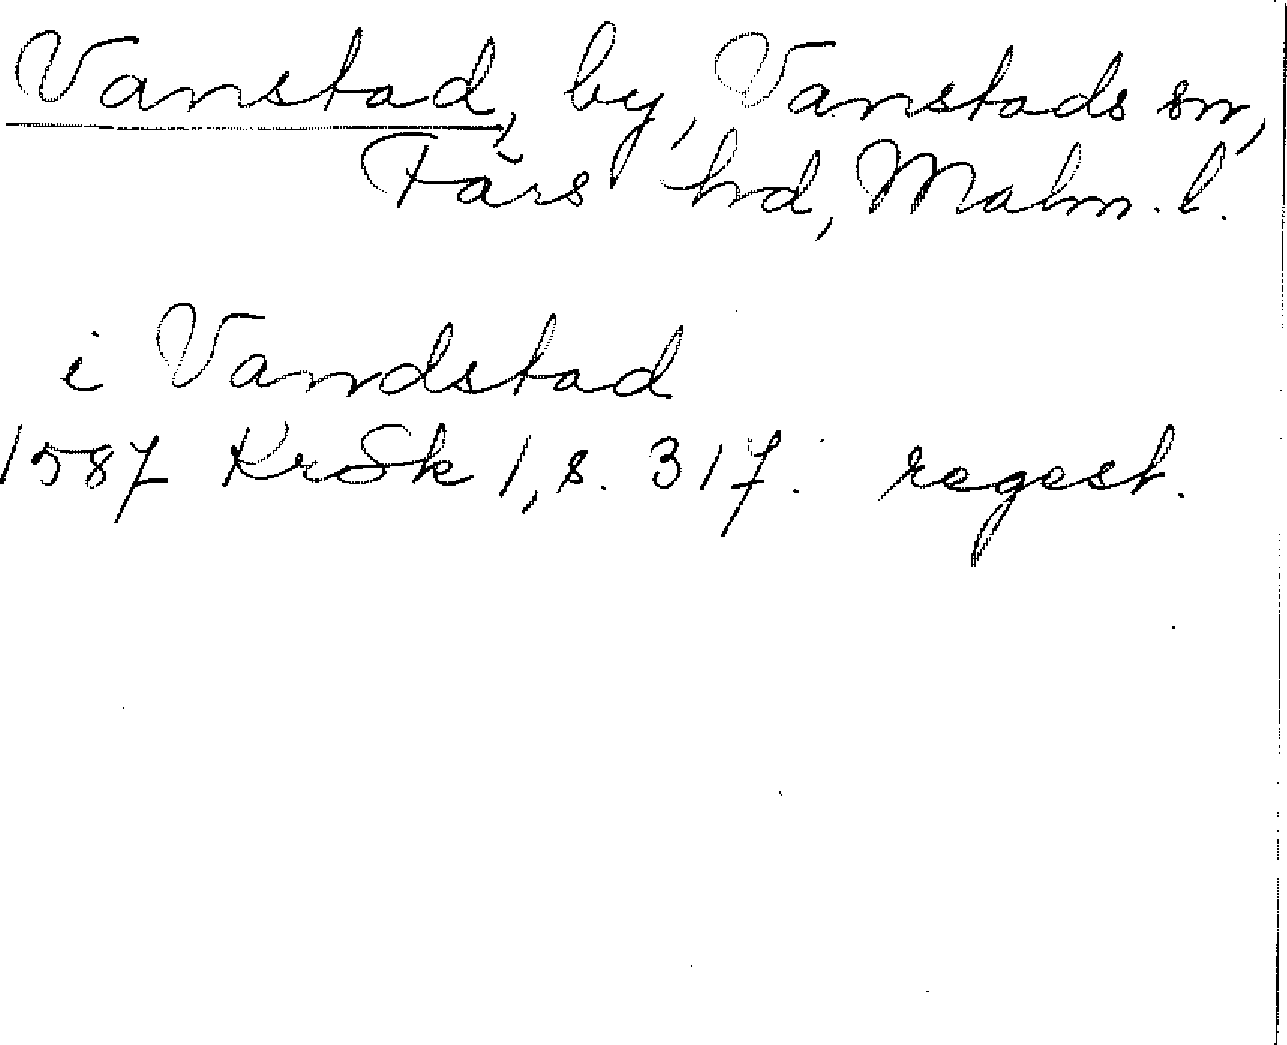 Vanstad, by, Vanstads sn,
Färs hd, Malm. l.
i Vandstad
1587 KrSk 1, s. 317. regest.